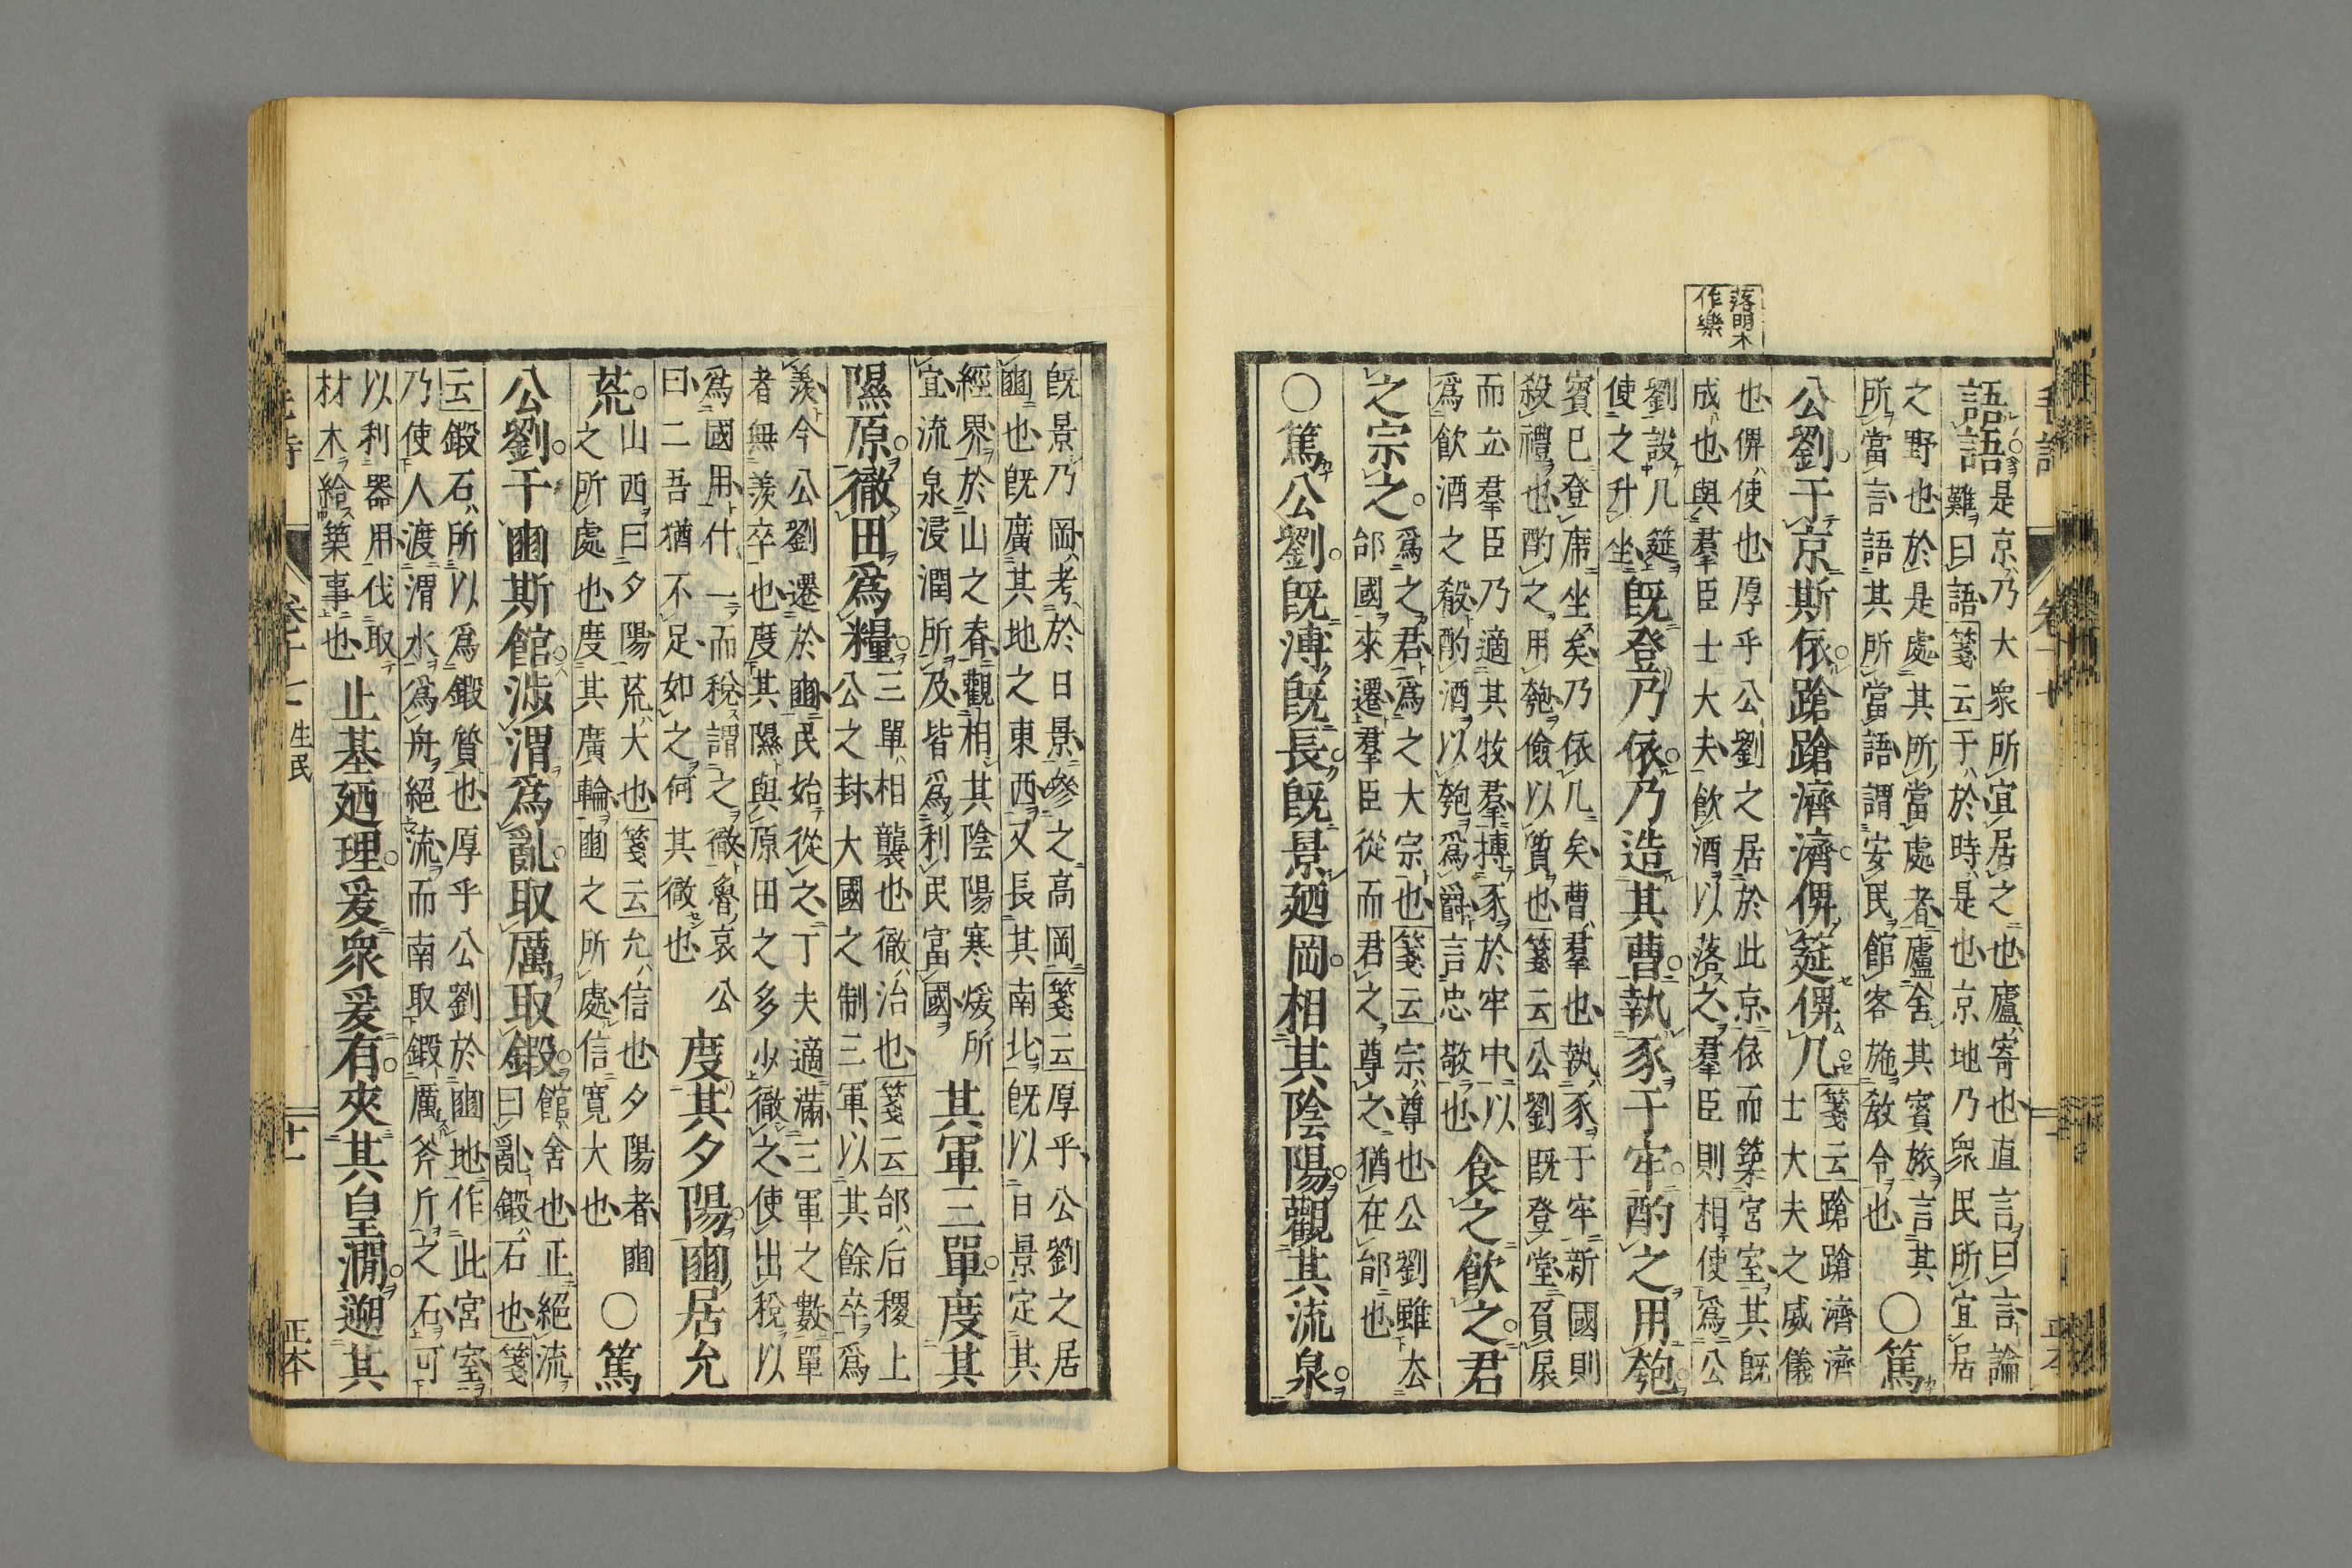 落明本
作樂
語語
是京乃大衆所宜居之也廬寄也直言曰言論
難曰語箋云于於時是也京地乃衆民所宜居
之野也於是處其所當處者廬舍其賓旅言其
所當言語其所當語謂安民館客施教令也
○篤
公劉于京斯依蹌蹌濟濟俾筵俾几
箋云蹌蹌濟濟
士大夫之威儀
也俾使也厚乎公劉之居於此京依而築宮室其既
成也與羣臣士大夫飲酒以落之羣臣則相使爲公
劉設几筵
使之升坐
既登乃依乃造其曹執豕于牢酌之用匏
賓已登席坐矣乃依几矣曹羣也執豕于牢新國則
殺禮也酌之用匏儉以質也箋云公劉既登堂負扆
而立羣臣乃適其牧羣摶豕於牢中以
爲飲酒之殽酌酒以匏爲爵言忠敬也
食之飲之君
之宗之
爲之君爲之大宗也箋云宗尊也公劉雖去
邰國來遷羣臣從而君之尊之猶在邰也
○篤公劉既溥既長既景廼岡相其陰陽觀其流泉
既景乃岡考於日景參之高岡箋云厚乎公劉之居
豳也既廣其地之東西又長其南北既以日景定其
經界於山之脊觀相其陰陽寒煖所
宜流泉浸潤所及皆爲利民富國
其軍三單度其
隰原徹田爲糧
三單相襲也徹治也箋云邰后稷上
公之封大國之制三軍以其餘卒爲
羨今公劉遷於豳民始從之丁夫適滿三軍之數單
者無羨卒也度其隰與原田之多少徹之使出稅以
爲國用什一而稅謂之徹魯哀公
曰二吾猶不足如之何其徹也
度其夕陽豳居允
荒
山西曰夕陽荒大也箋云允信也夕陽者豳
之所處也度其廣輪豳之所處信寬大也
○篤
公劉于豳斯館涉渭爲亂取厲取鍛
館舍也正絕流
曰亂鍛石也箋
云鍛石所以爲鍛質也厚乎公劉於豳地作此宮室
乃使人渡渭水爲舟絕流而南取鍛厲斧斤之石可
以利器用伐取
材木給築事也
止基廼理爰衆爰有夾其皇澗遡其
卷十七 生民 十一 正本